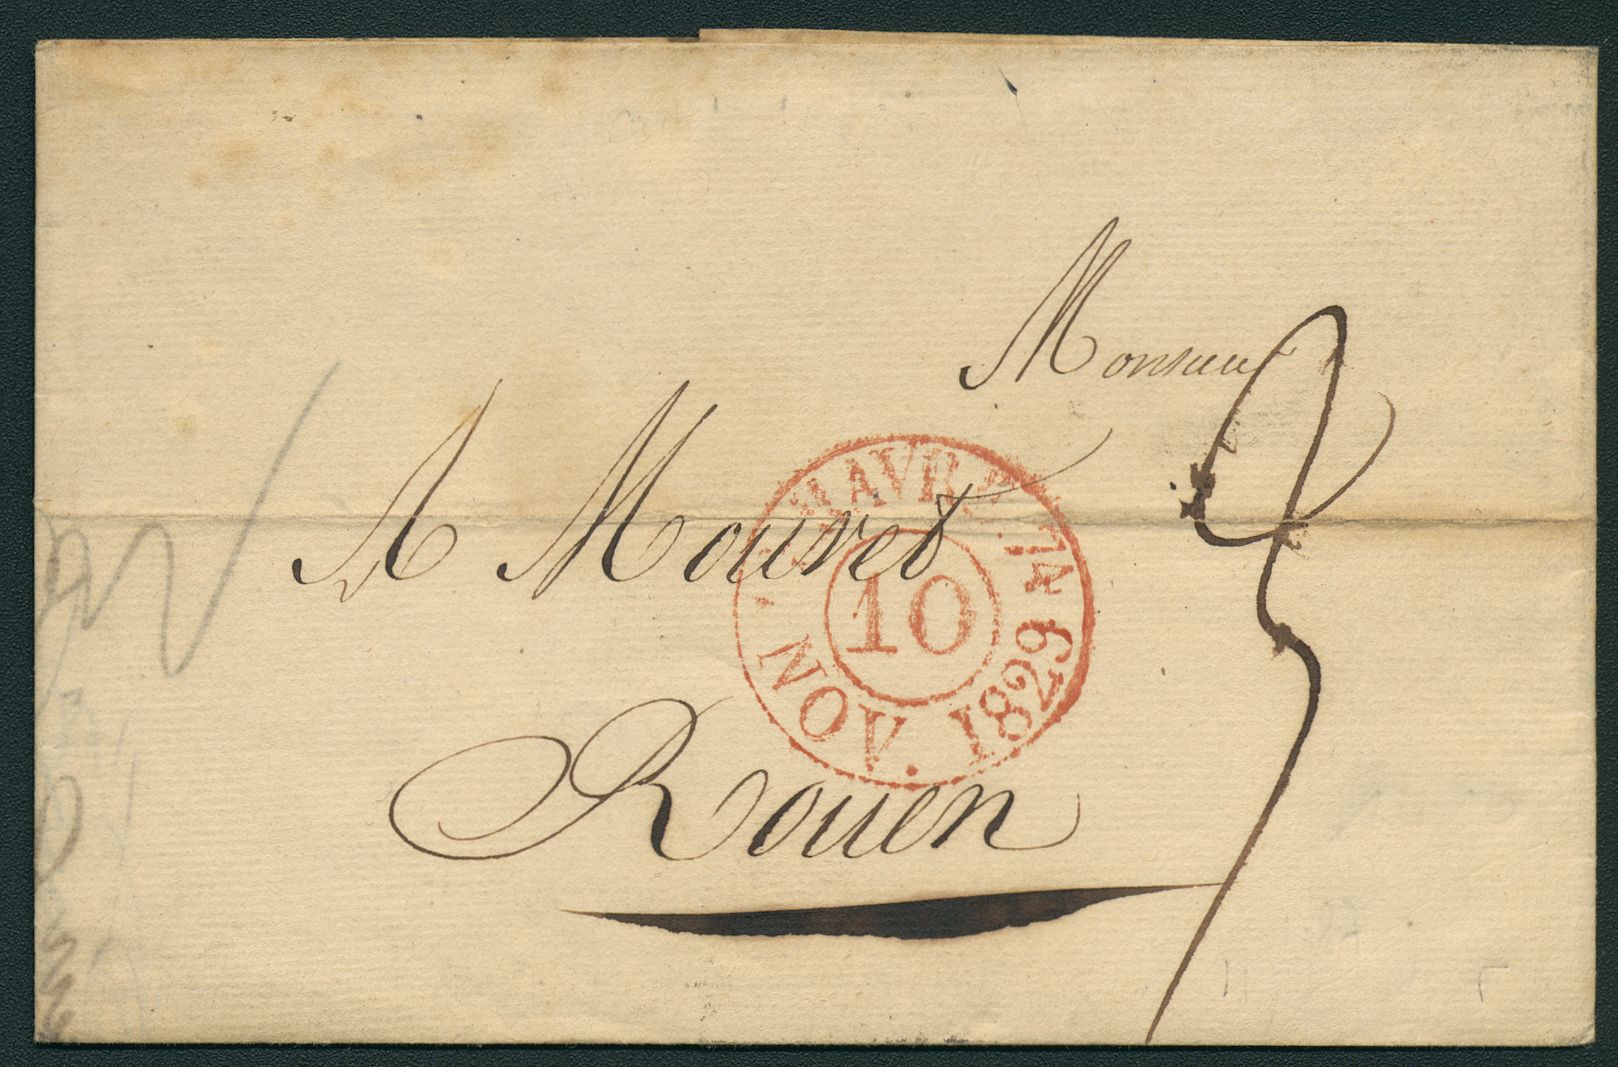 Monsieur
A Mouret
Rouen
HAVRE 74
10
NOV. 1829
3